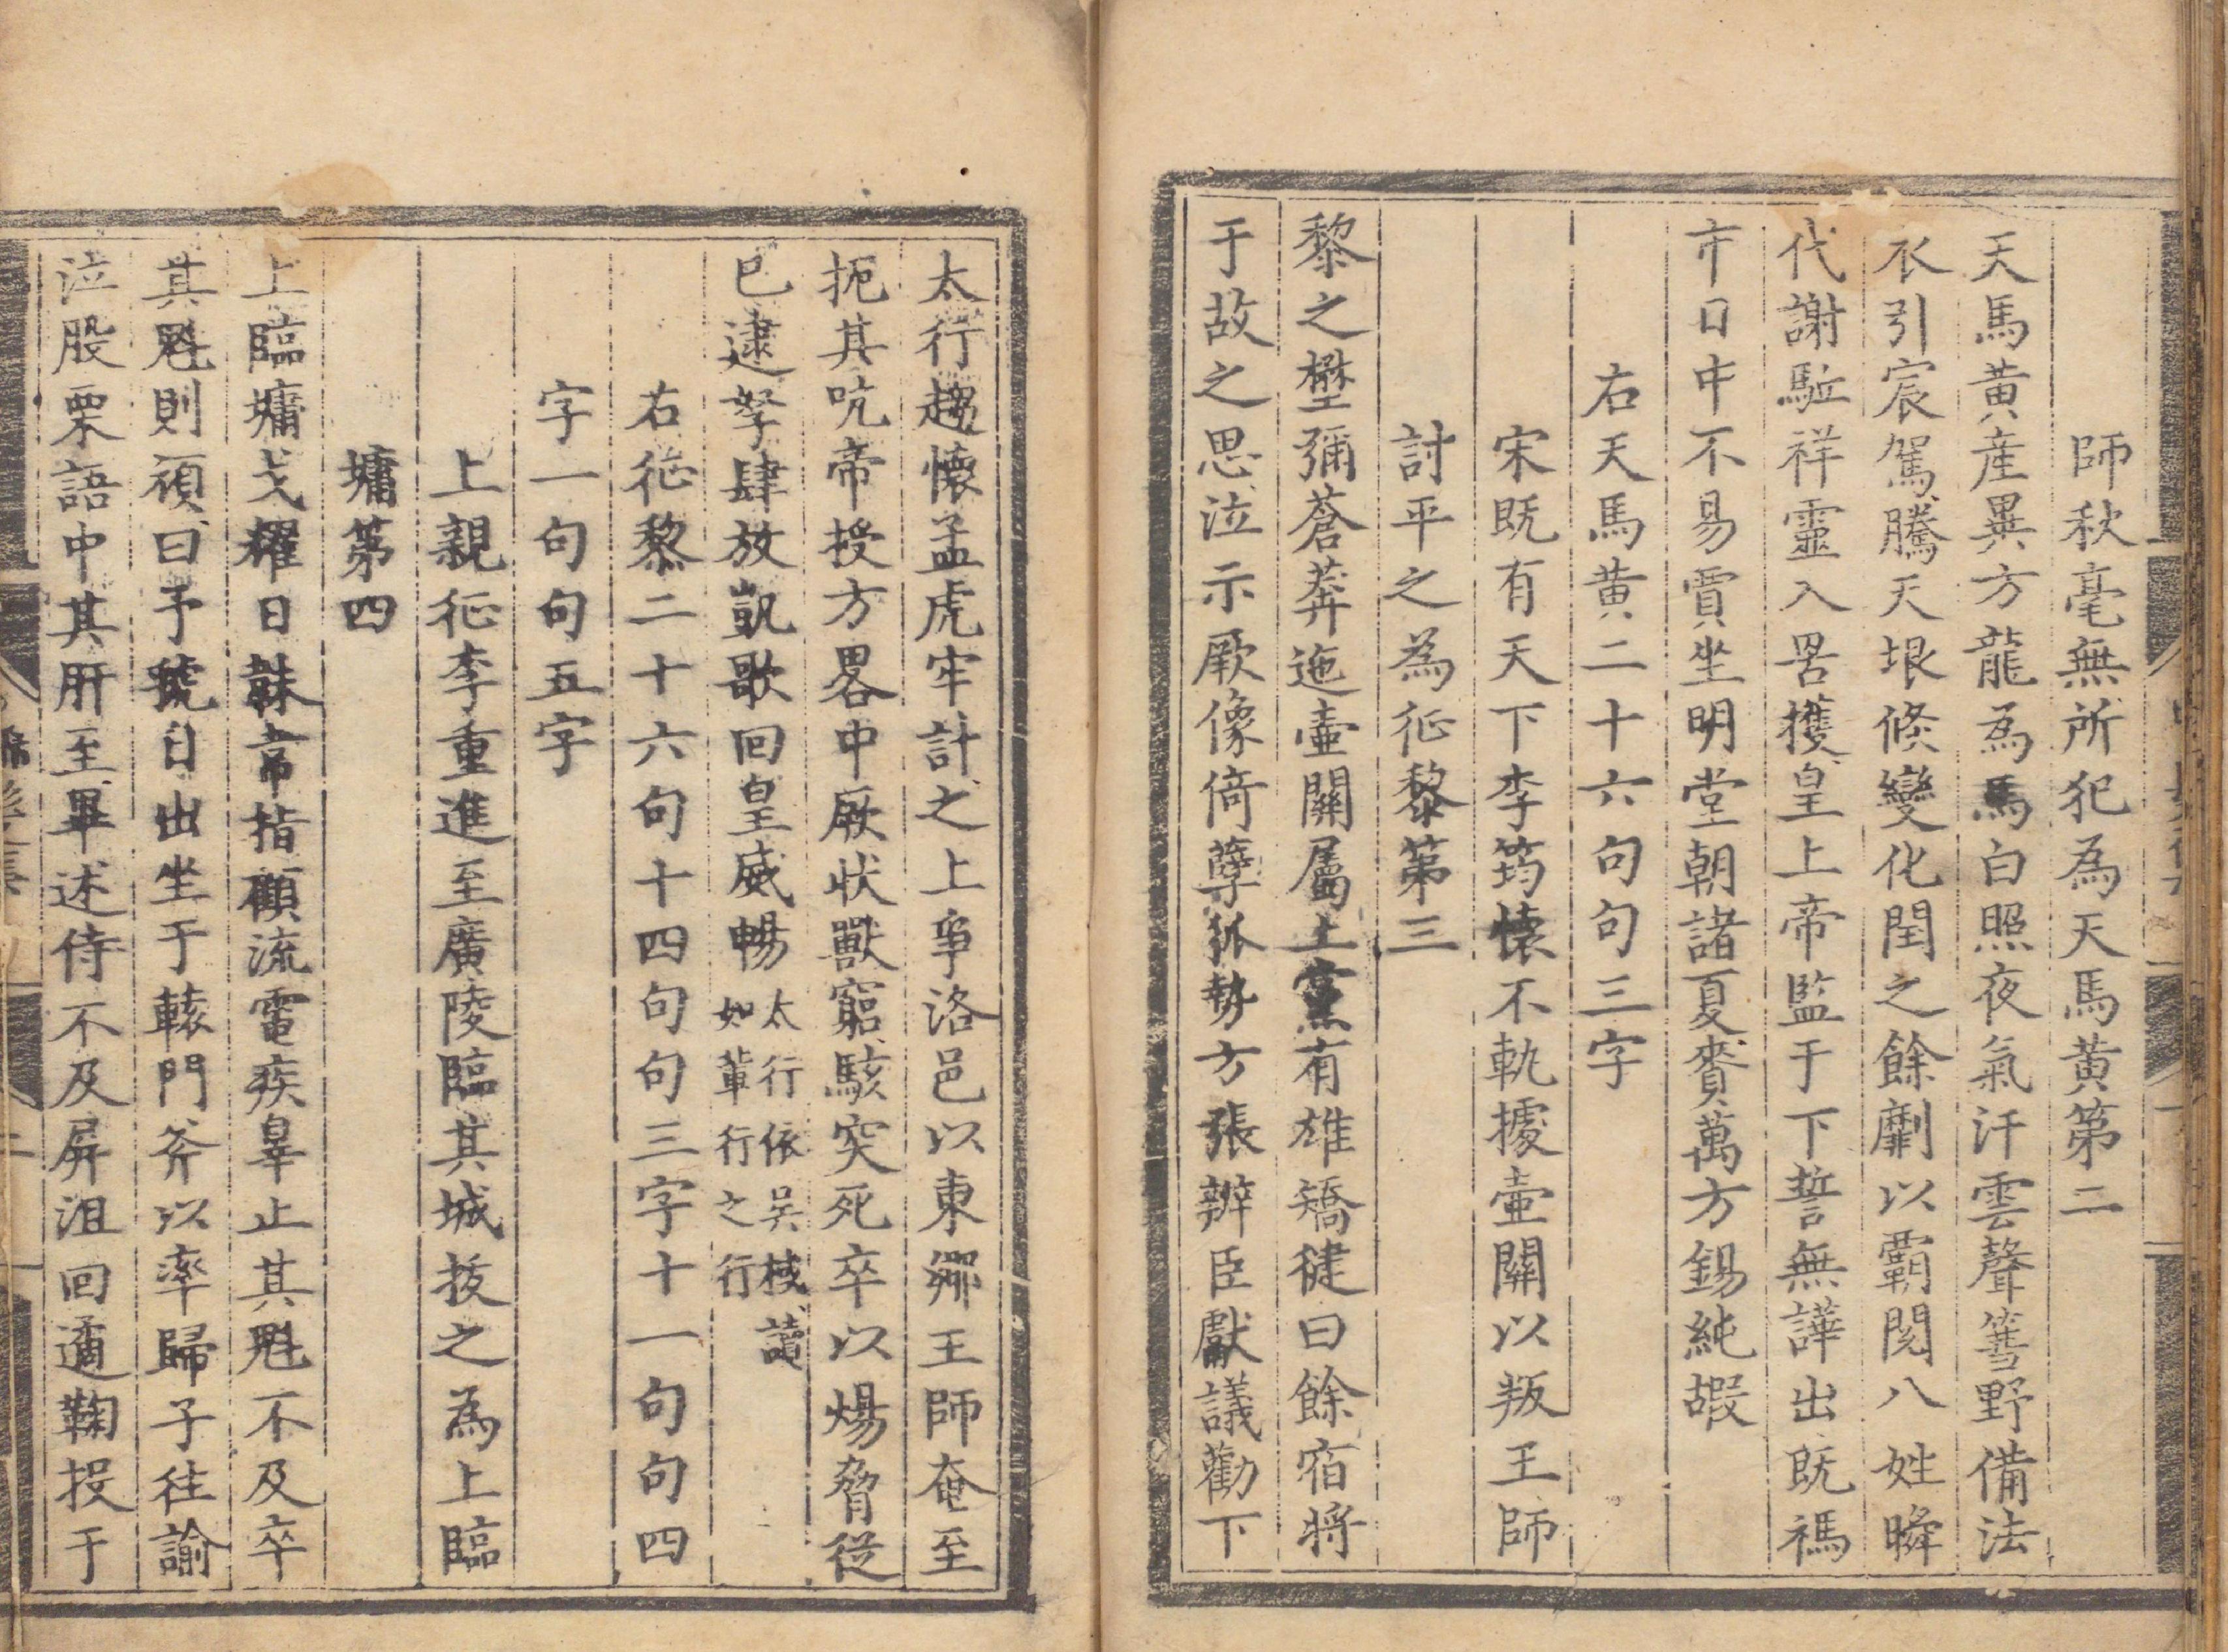 師秋毫無所犯為天馬黃第二
天馬黃産異方龍為馬馬白照夜氣汗雲聲筜野備法
仗引宸駕騰天垠倏變化閏之餘劘以覇閱八姓瞬
代謝駈祥靈入罟擭皇上帝監于下誓無譁出既禡
市日中不易賈坐明堂朝諸夏賚萬方錫純嘏
右天馬黃二十六句句三字
宋既有天下李筠懷不軌據壷關以叛王師
討平之為征黎第三
黎之壄彌蒼莽迤壷關屬上黨有雄矯徤曰餘宿將
于故之思泣示厥像倚孽狐勢方張辨臣獻議勸下
太行趨懷孟虎牢計之上爭洛邑以東鄉王師奄至
扼其吭帝授方畧中厥狀獸窮駭突死卒以煬脅從
已逮孥肆放凱歌回皇威暢太行依吳棫讀
如輩行之行
右征黎二十六句十四句句三字十一句句四
字一句句五字
上親征李重進至廣陵臨其城拔之為上臨
墉第四
上臨墉戈耀日韎韋指顧流電疾辠止其魁不及卒
其魁則頑曰予號日出坐于轅門斧以率歸子往諭
泣股栗語中其肝至畢述侍不及屏沮回遹鞠投于